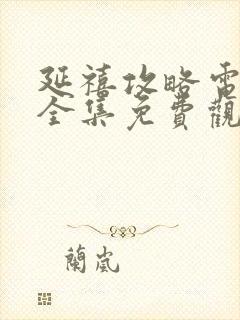 延禧攻略電
全集免費觀
蘭嵐